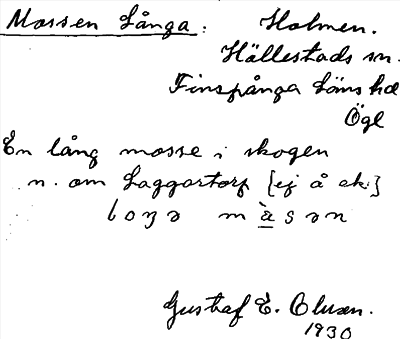 Mossen Långa: Holmen.
Hällestads sn.
Finspånga läns hd
Ögl
En lång mosse i skogen
n. om Laggartorp [ej å ek.]
loŋə màsən
Gustaf E. Olsson.
1930